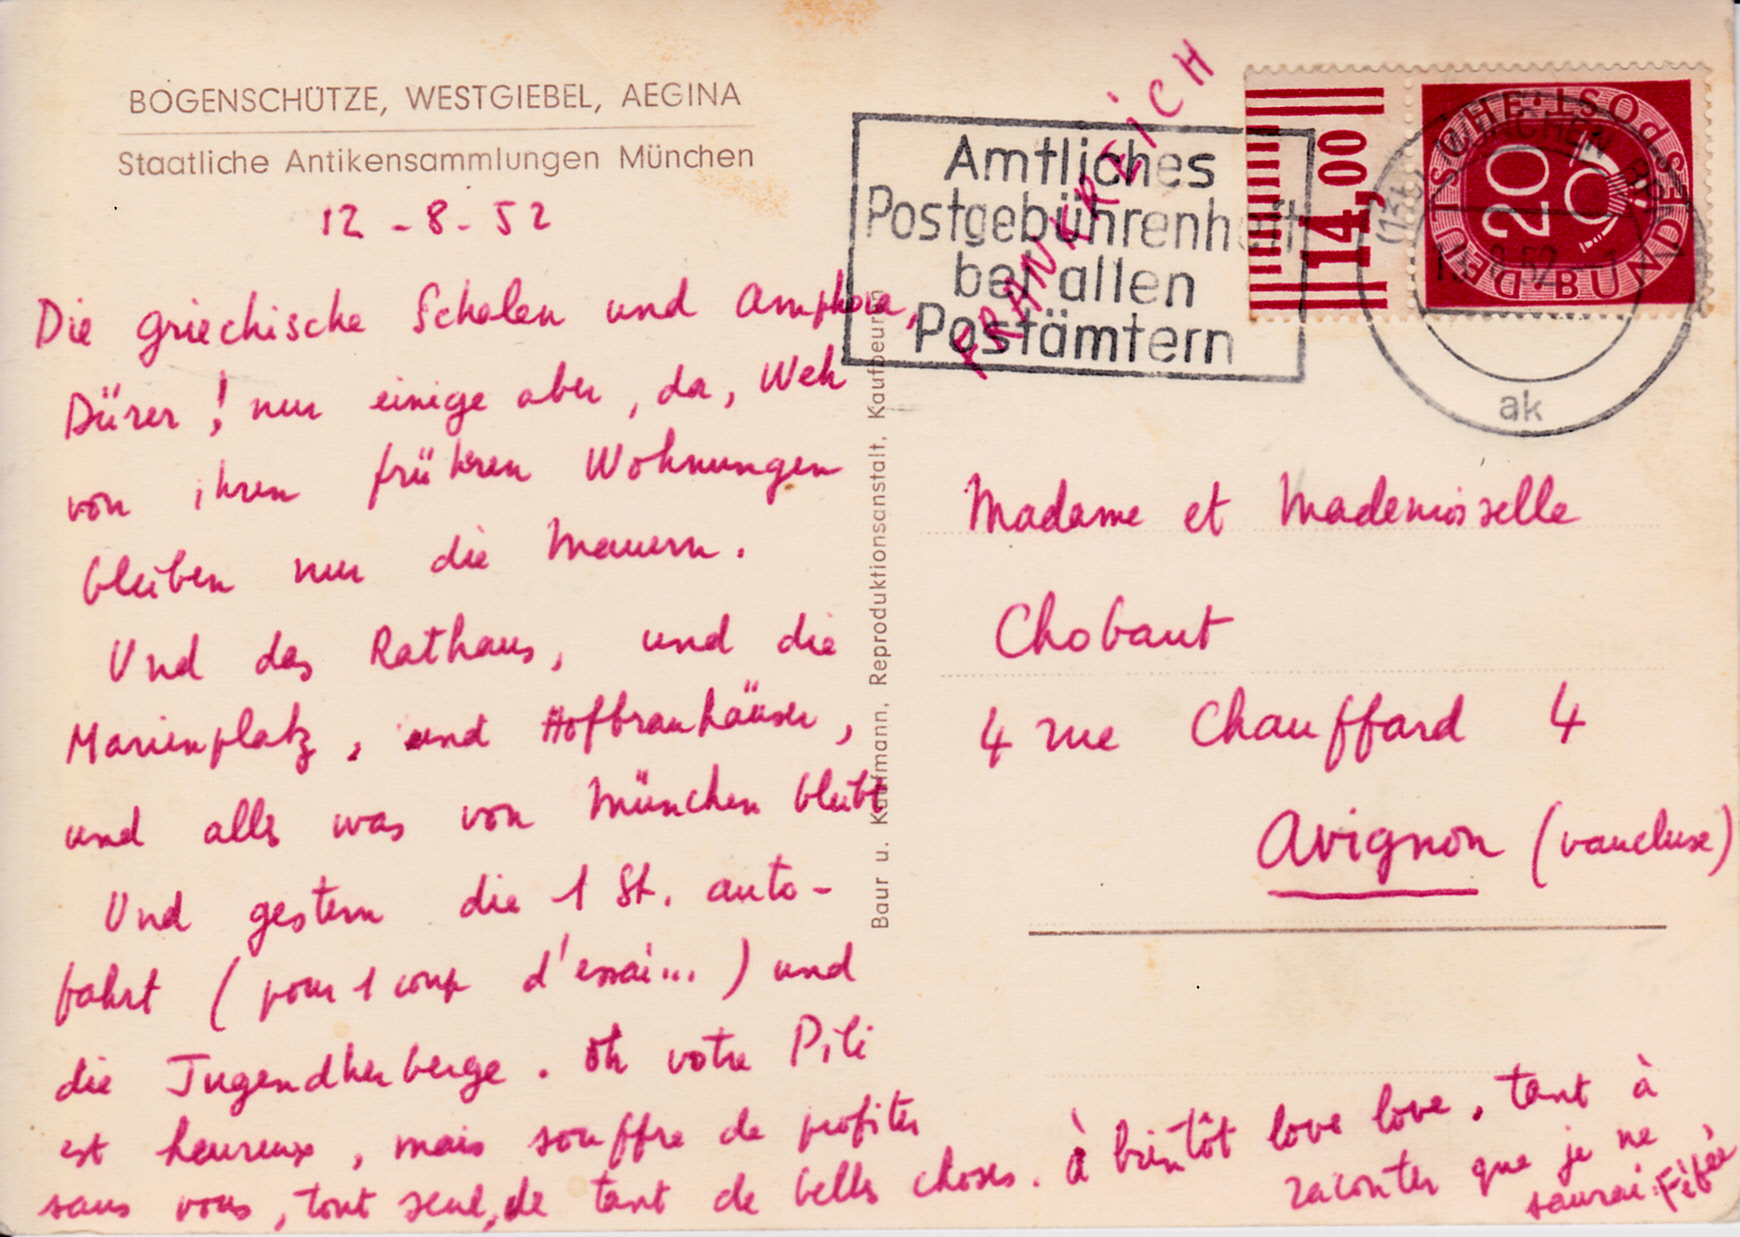 BOGENSCHÜTZE, WESTGIEBEL, AEGINA
Staatliche Antikensammlungen München
12 - 8 - 52
Die griechische Schalen und Amphora,
Dürer ! nur einige aber, da, Weh
von ihren frühren Wohnungen
bleiben nur die Mauern.
Und das Rathaus, und die
Marienplatz, und Hofbrauhäuser,
und alls was von München bleibt
Und gestern die 1 St. auto-
fahrt (pour 1 coup d'essai...) und
die Jugendherberge. Oh votre Pili
est heureux, mais souffre de profiter
sans vous, tout seul, de tant de belles choses. à bientôt love love. Tant à
raconter que je ne
saurai. Fifée
Baur u. Kaufmann, Reproduktionsanstalt, Kaufbeuren
FRANKREICH
Amtliches
Postgebührenheft
bei allen
Postämtern
14,00
DEUTSCHE BUNDESPOST
20
MÜNCHEN
8.52
ak
Madame et Mademoiselle
Chobaut
4 rue Chauffard 4
Avignon (Vaucluse)